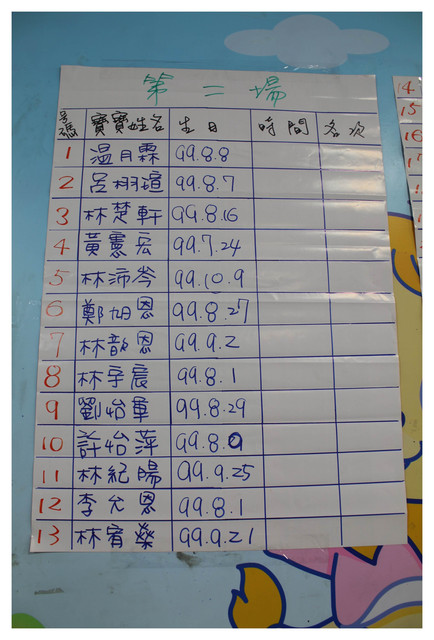 第二場
號碼 寶寶姓名 生日 時間 名次
1 溫月霖 99.8.8
2 呂栩瑄 99.8.7
3 林楚軒 99.8.16
4 黃憲宏 99.7.24
5 林沛岑 99.10.9
6 鄭旭恩 99.8.27
7 林歆恩 99.9.2
8 林宇宸 99.8.1
9 劉怡單 99.8.29
10 許怡萍 99.8.9
11 林紀陽 99.9.25
12 李允恩 99.8.1
13 林宥燊 99.9.21
14
15
16
17